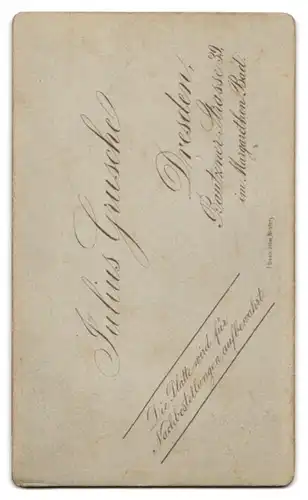 Julius Grusche
Dresden,
Bautzner-Strasse 39,
im Margarethen-Bad.
Die Platte wird für
Nachbestellungen aufbewahrt.